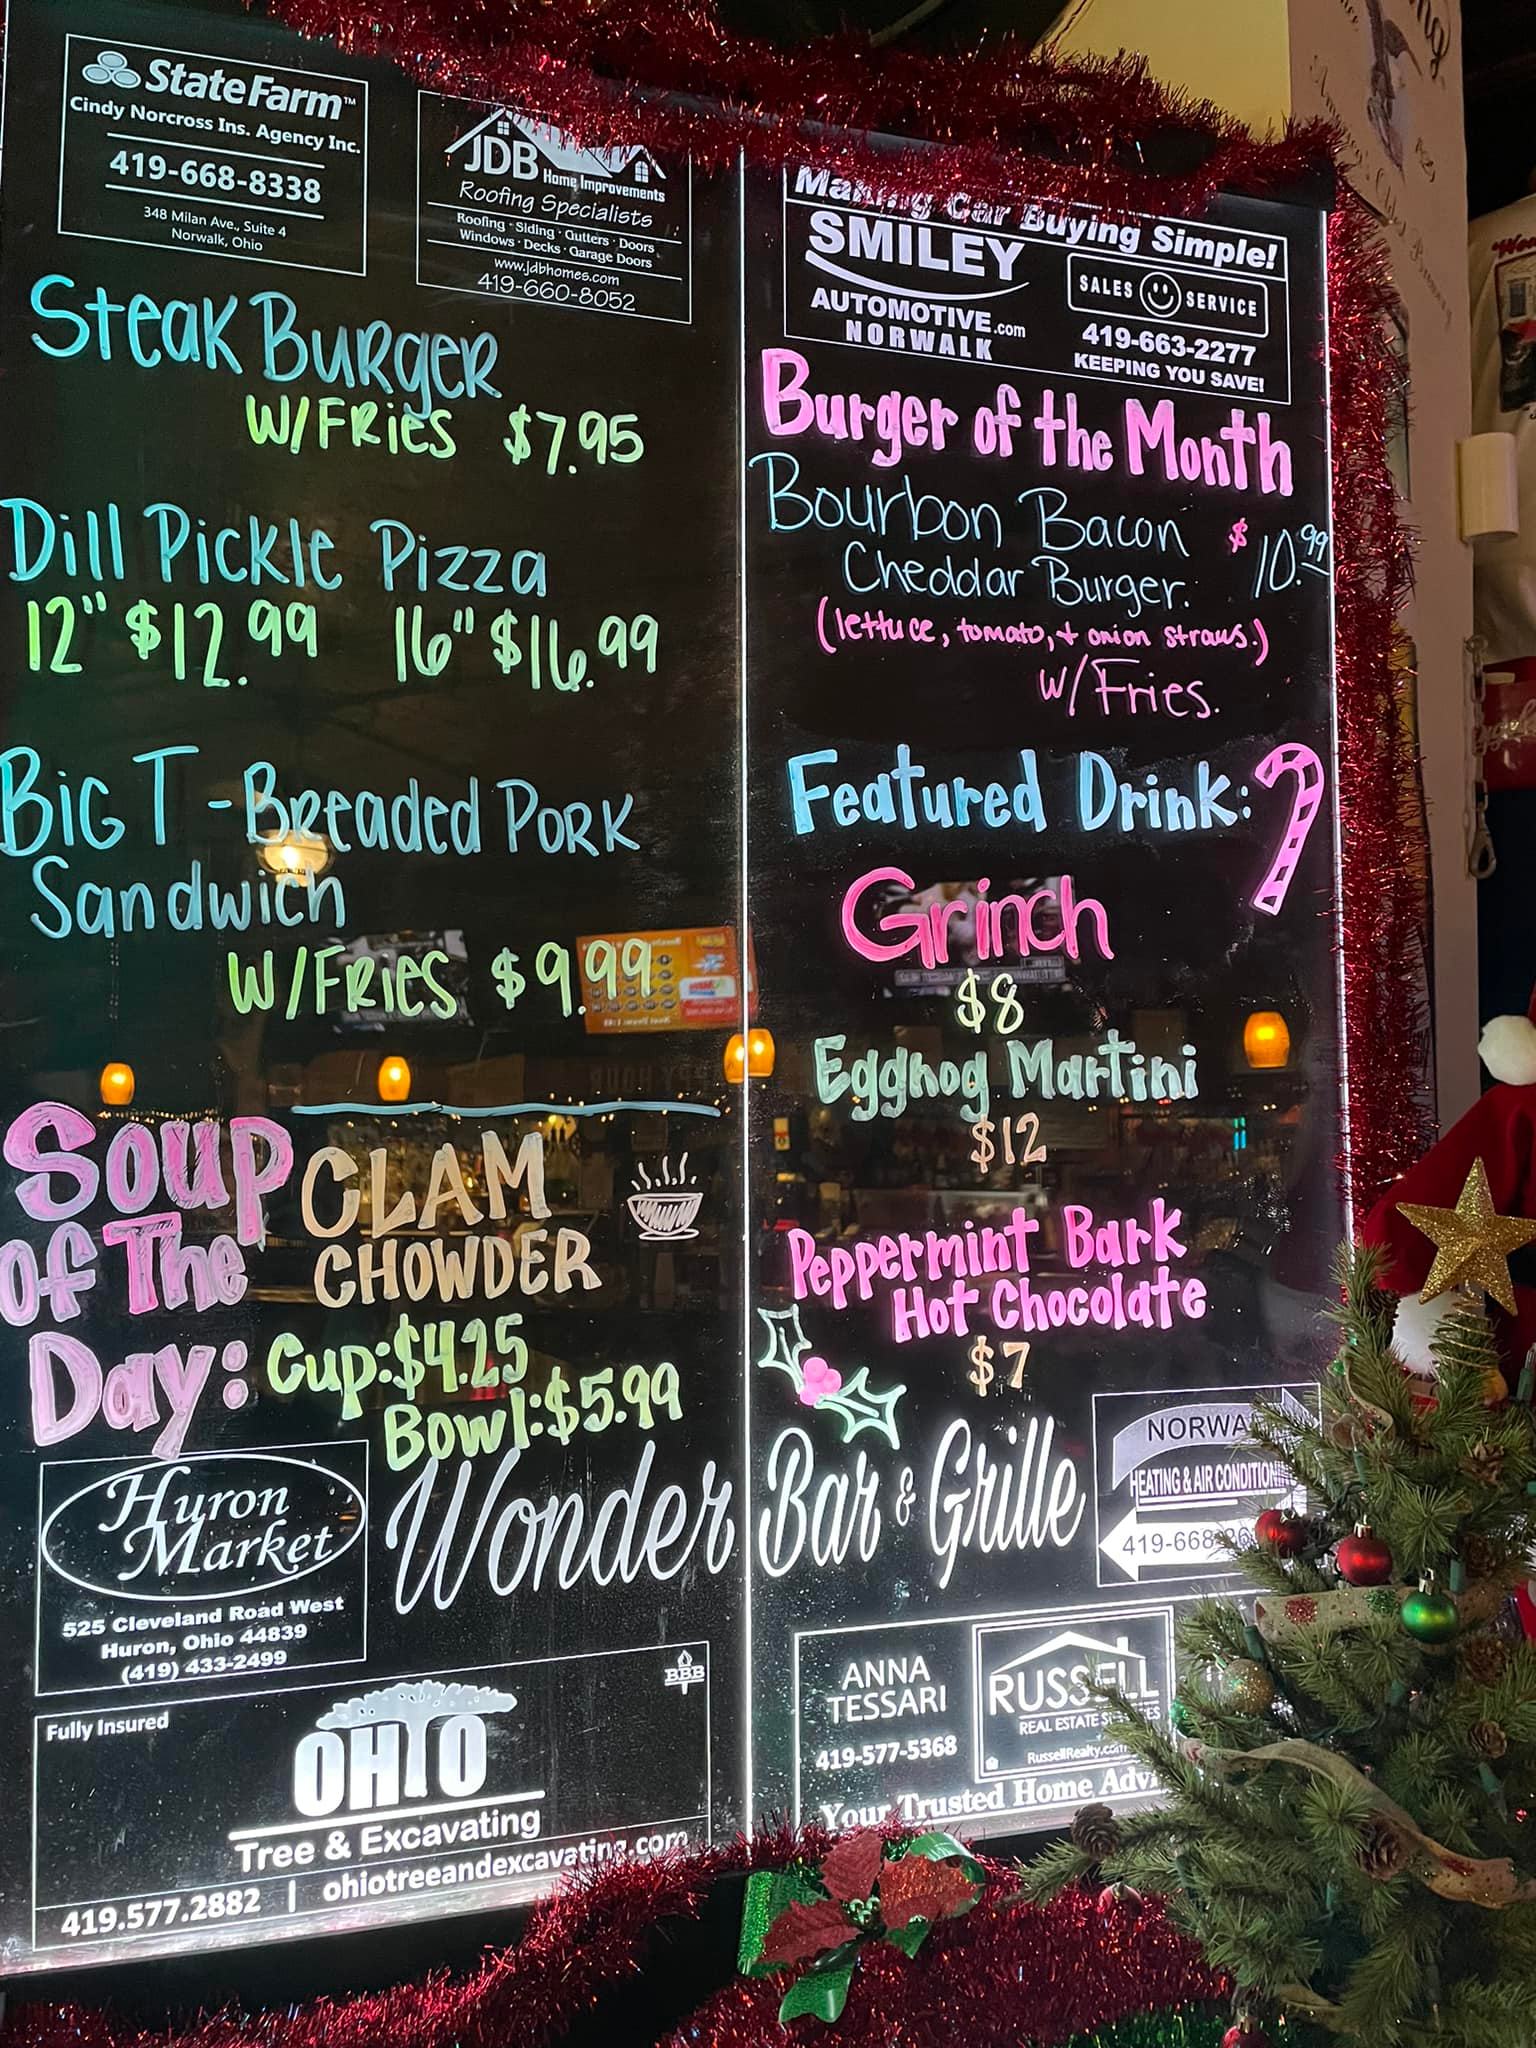 StateFarm™
Cindy Norcross Ins. Agency Inc.
419-668-8338
348 Milan Ave., Suite 4
Norwalk, Ohio
JDB Home Improvements
Roofing Specialists
Roofing · Siding · Gutters · Doors
Windows · Decks · Garage Doors
www.jdbhomes.com
419-660-8052
Steak Burger
W/Fries $7.95
Dill Pickle Pizza
12" $12.99 16" $16.99
Big T - Breaded Pork
Sandwich
W/Fries $9.99
Soup
Of The
Day:
CLAM
CHOWDER
Cup:$4.25
Bowl:$5.99
Making Car Buying Simple!
SMILEY
AUTOMOTIVE.com
NORWALK
SALES SERVICE
419-663-2277
KEEPING YOU SAVE!
Burger of the Month
Bourbon Bacon $10.99
Cheddar Burger.
(lettuce, tomato, + onion straws.)
W/Fries.
Featured Drink:
Grinch
$8
Eggnog Martini
$12
Peppermint Bark
Hot Chocolate
$7
Wonder Bar & Grille
Huron
Market
525 Cleveland Road West
Huron, Ohio 44839
(419) 433-2499
NORWA
HEATING & AIR CONDITION
419-668
BBB
Fully Insured
OHIO
Tree & Excavating
419.577.2882 | ohiotreeandexcavating.com
ANNA
TESSARI
419-577-5368
RUSSELL
REAL ESTATE
RussellRealty.com
Your Trusted Home